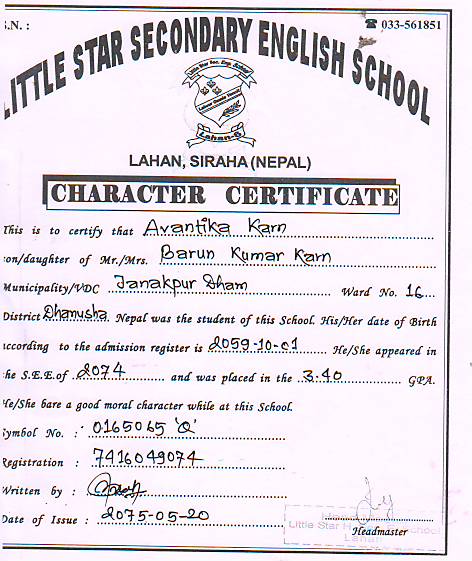 S.N. :
☎ 033-561851
LITTLE STAR SECONDARY ENGLISH SCHOOL
Little Star Sec. Eng. School
Lahan-8
LAHAN, SIRAHA (NEPAL)
CHARACTER CERTIFICATE
This is to certify that Avantika Karn
son/daughter of Mr./Mrs. Barun Kumar Karn
Municipality/VDC Janakpur Dham Ward No. 16
District Dhanusha Nepal was the student of this School. His/Her date of Birth
according to the admission register is 2059-10-01 He/She appeared in
the S.E.E.of 2074 and was placed in the 3.40 GPA.
He/She bare a good moral character while at this School.
Symbol No. : 0165065 'Q'
Registration : 7416049074
Written by :
Date of Issue : 2075-05-20
Little Star School
Lahan
Headmaster